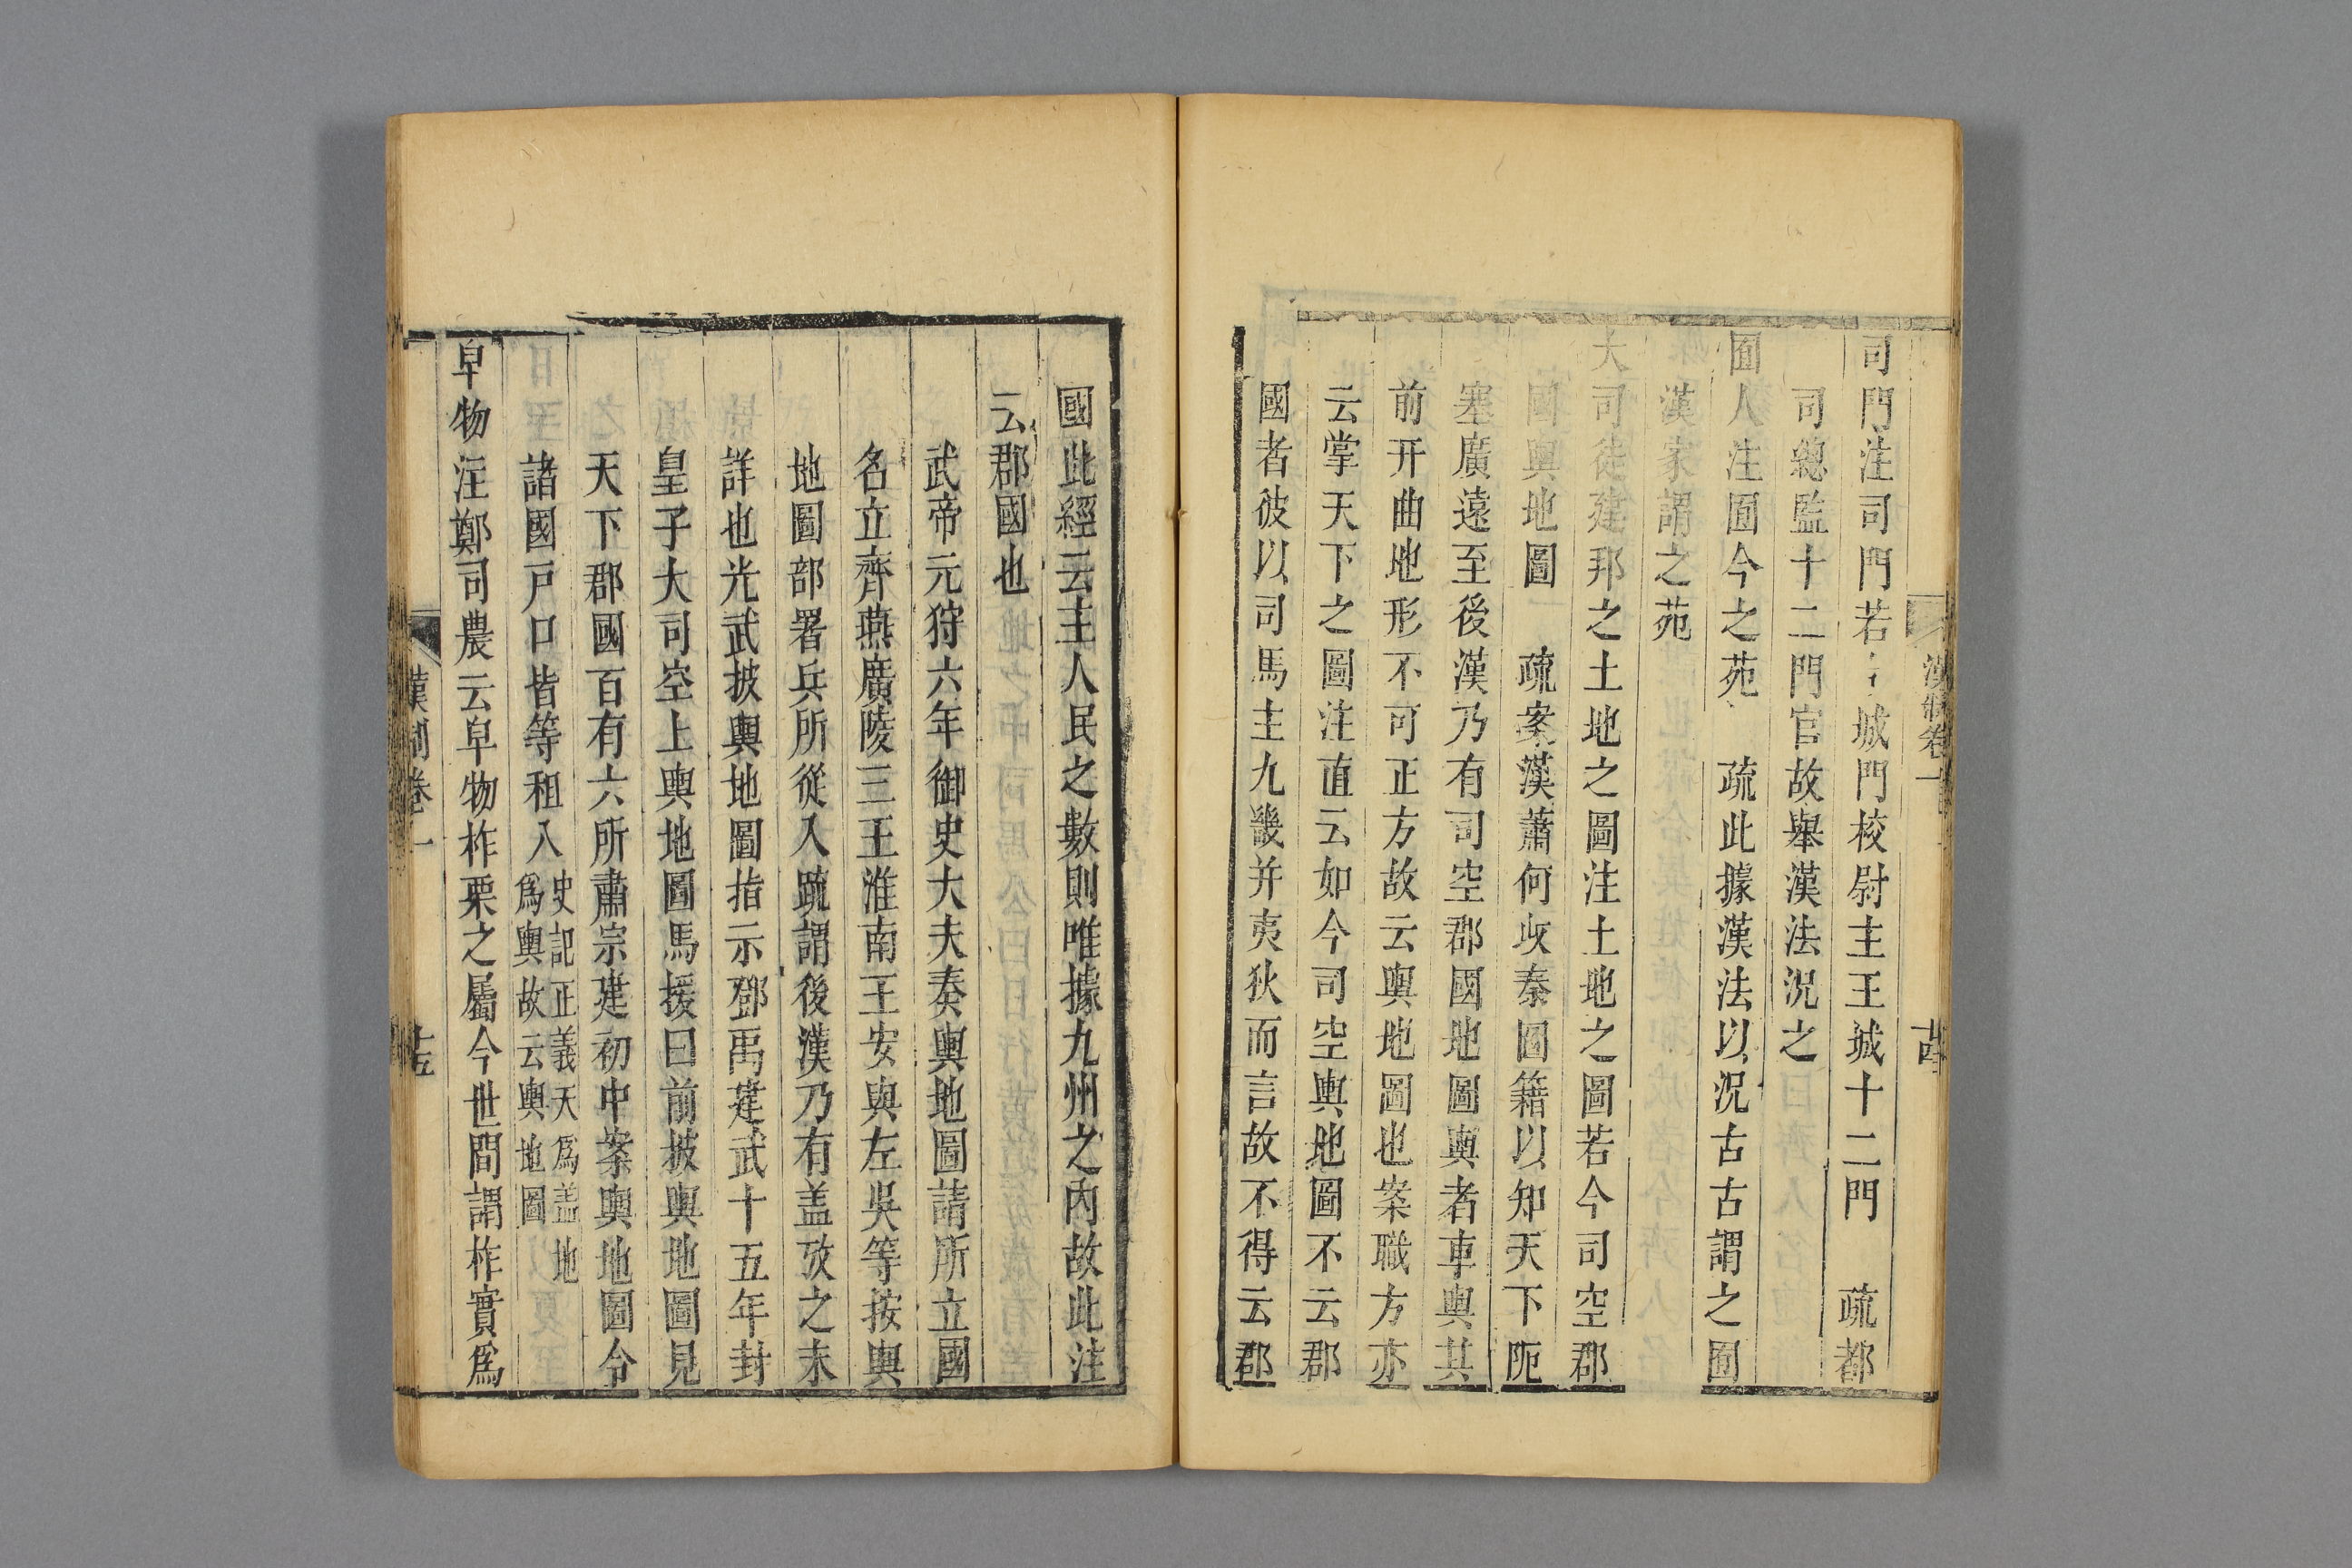 漢制卷一
十四
司門注司門若城門校尉主王城十二門　疏都
司總監十二門官故舉漢法況之
囿人注囿今之苑　疏此據漢法以況古古謂之囿
漢家謂之苑
大司徒建邦之土地之圖注土地之圖若今司空郡
國輿地圖　疏案漢蕭何收秦圖籍以知天下阨
塞廣遠至後漢乃有司空郡國地圖輿者車輿其
前开曲地形不可正方故云輿地圖也案職方亦
云掌天下之圖注直云如今司空輿地圖不云郡
國者彼以司馬主九畿并夷狄而言故不得云郡
國此經云主人民之數則唯據九州之內故此注
云郡國也
武帝元狩六年御史大夫奏輿地圖請所立國
名立齊燕廣陵三王淮南王安與左吳等按輿
地圖部署兵所從入疏謂後漢乃有盖攷之未
詳也光武披輿地圖指示鄧禹建武十五年封
皇子大司空上輿地圖馬援曰前披輿地圖見
天下郡國百有六所肅宗建初中案輿地圖令
諸國戶口皆等租入史記正義天爲盖地爲輿故云輿地圖
阜物注鄭司農云阜物柞栗之屬今世間謂柞實爲
漢制卷一
十五